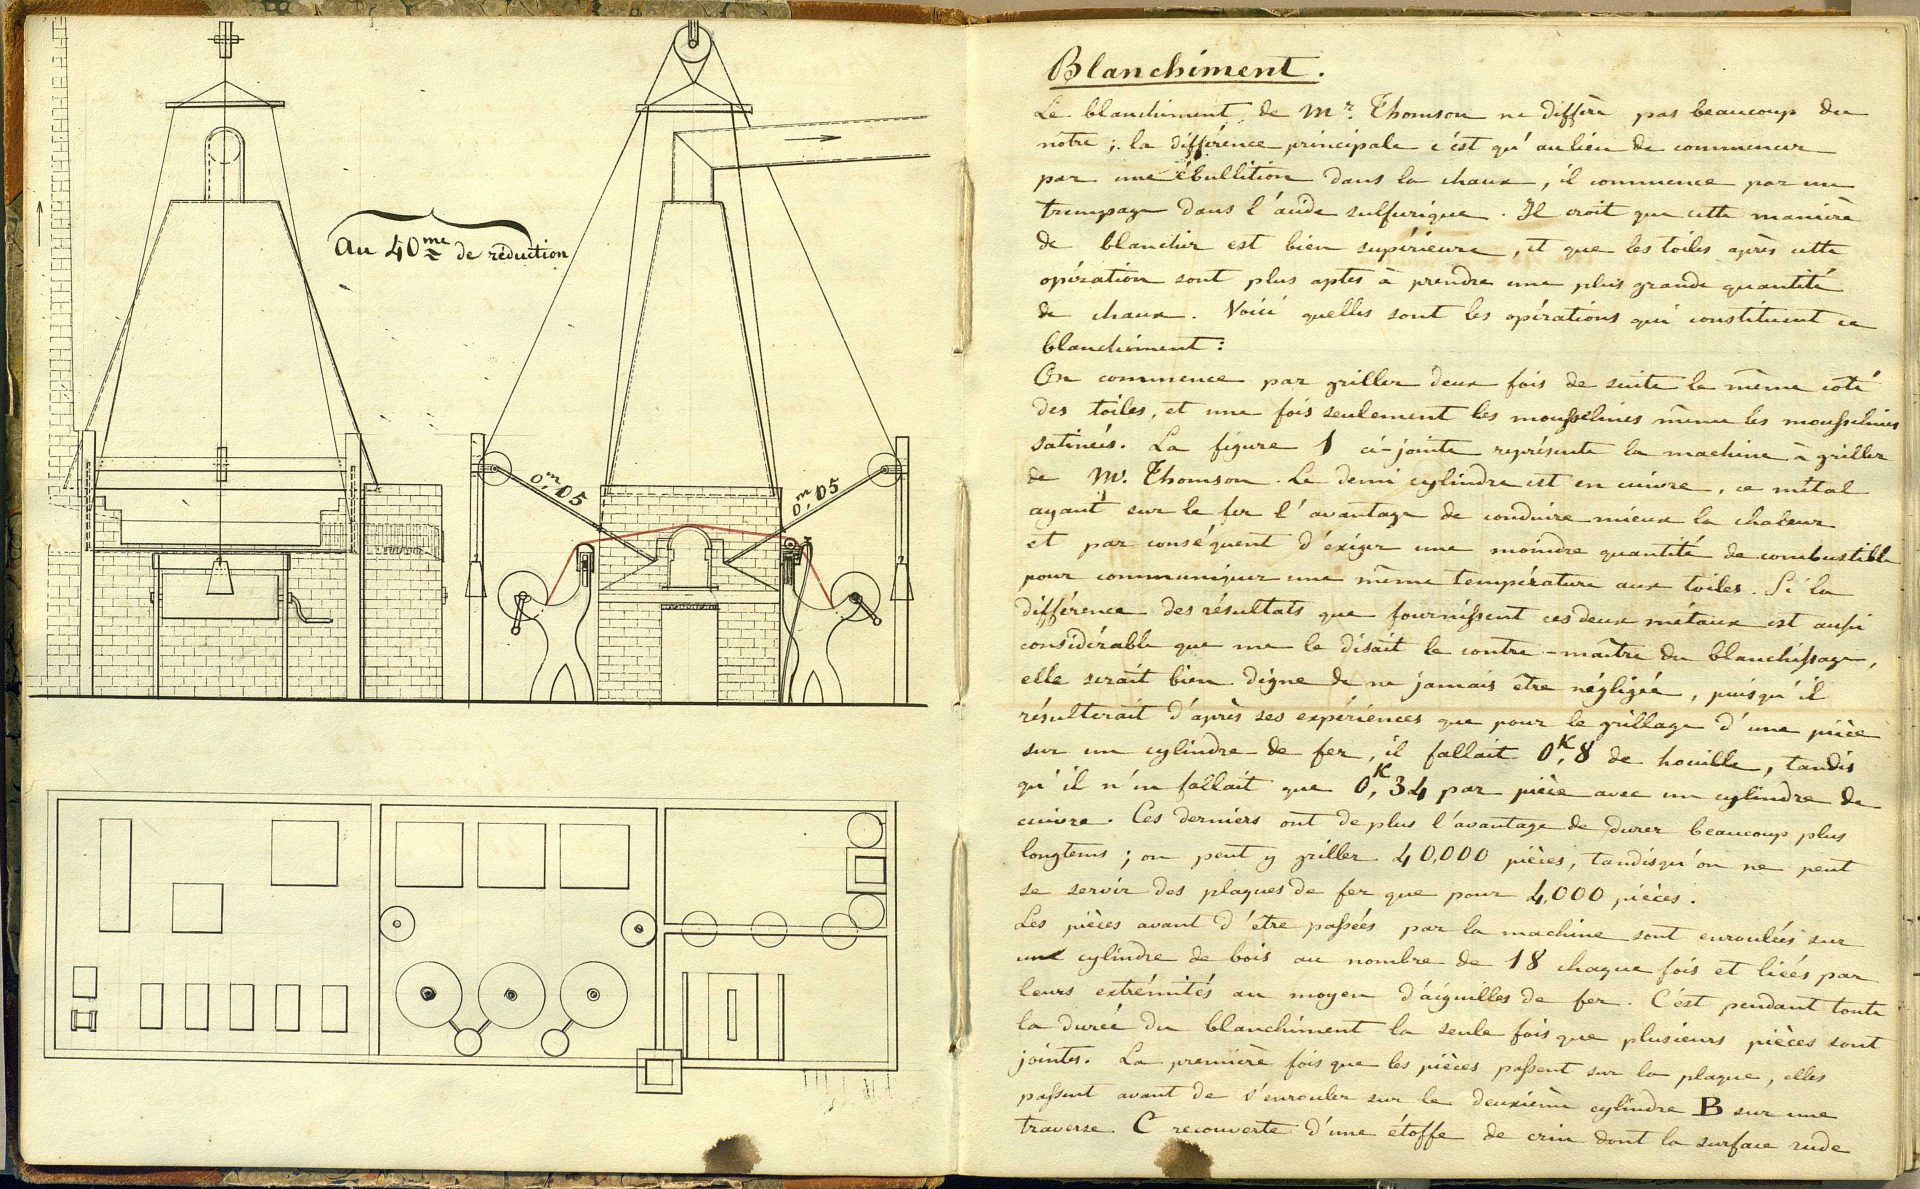 au 40.me de réduction
0,m05
0,m05
Blanchiment.
Le blanchiment de Mr. Thomson ne diffère pas beaucoup du
nôtre ; la différence principale c'est qu'au lieu de commencer
par une ébullition dans la chaux, il commence par un
trempage dans l'acide sulfurique. Il croit que cette manière
de blanchir est bien supérieure, et que les toiles après cette
opération sont plus aptes à prendre une plus grande quantité
de chaux. Voici quelles sont les opérations qui constituent ce
blanchiment :
On commence par griller deux fois de suite le même côté
des toiles, et une fois seulement les mousselines même les mousselines
satinées. La figure 1 ci-jointe représente la machine à griller
de Mr. Thomson. Le demi cylindre est en cuivre, ce métal
ayant sur le fer l'avantage de conduire mieux la chaleur
et par conséquent d'exiger une moindre quantité de combustible
pour communiquer une même température aux toiles. Si la
différence des résultats que fournissent ces deux métaux est aussi
considérable que me le disait le contre-maître du blanchissage,
elle serait bien digne de ne jamais être négligée, puisqu'il
résulterait d'après ses expériences que pour le grillage d'une pièce
sur un cylindre de fer, il fallait 0,K8 de houille, tandis
qu'il n'en fallait que 0,K34 par pièce avec un cylindre de
cuivre. Ces derniers ont de plus l'avantage de durer beaucoup plus
longtems ; on peut y griller 40,000 pièces, tandisqu'on ne peut
se servir des plaques de fer que pour 4,000 pièces.
Les pièces avant d'être passées par la machine sont enroulées sur
un cylindre de bois au nombre de 18 chaque fois et liées par
leurs extrémités au moyen d'aiguilles de fer. C'est pendant toute
la durée du blanchiment la seule fois que plusieurs pièces sont
jointes. La première fois que les pièces passent sur la plaque, elles
passent avant de s'enrouler sur le deuxième cylindre B sur une
traverse C recouverte d'une étoffe de crin dont la surface rude